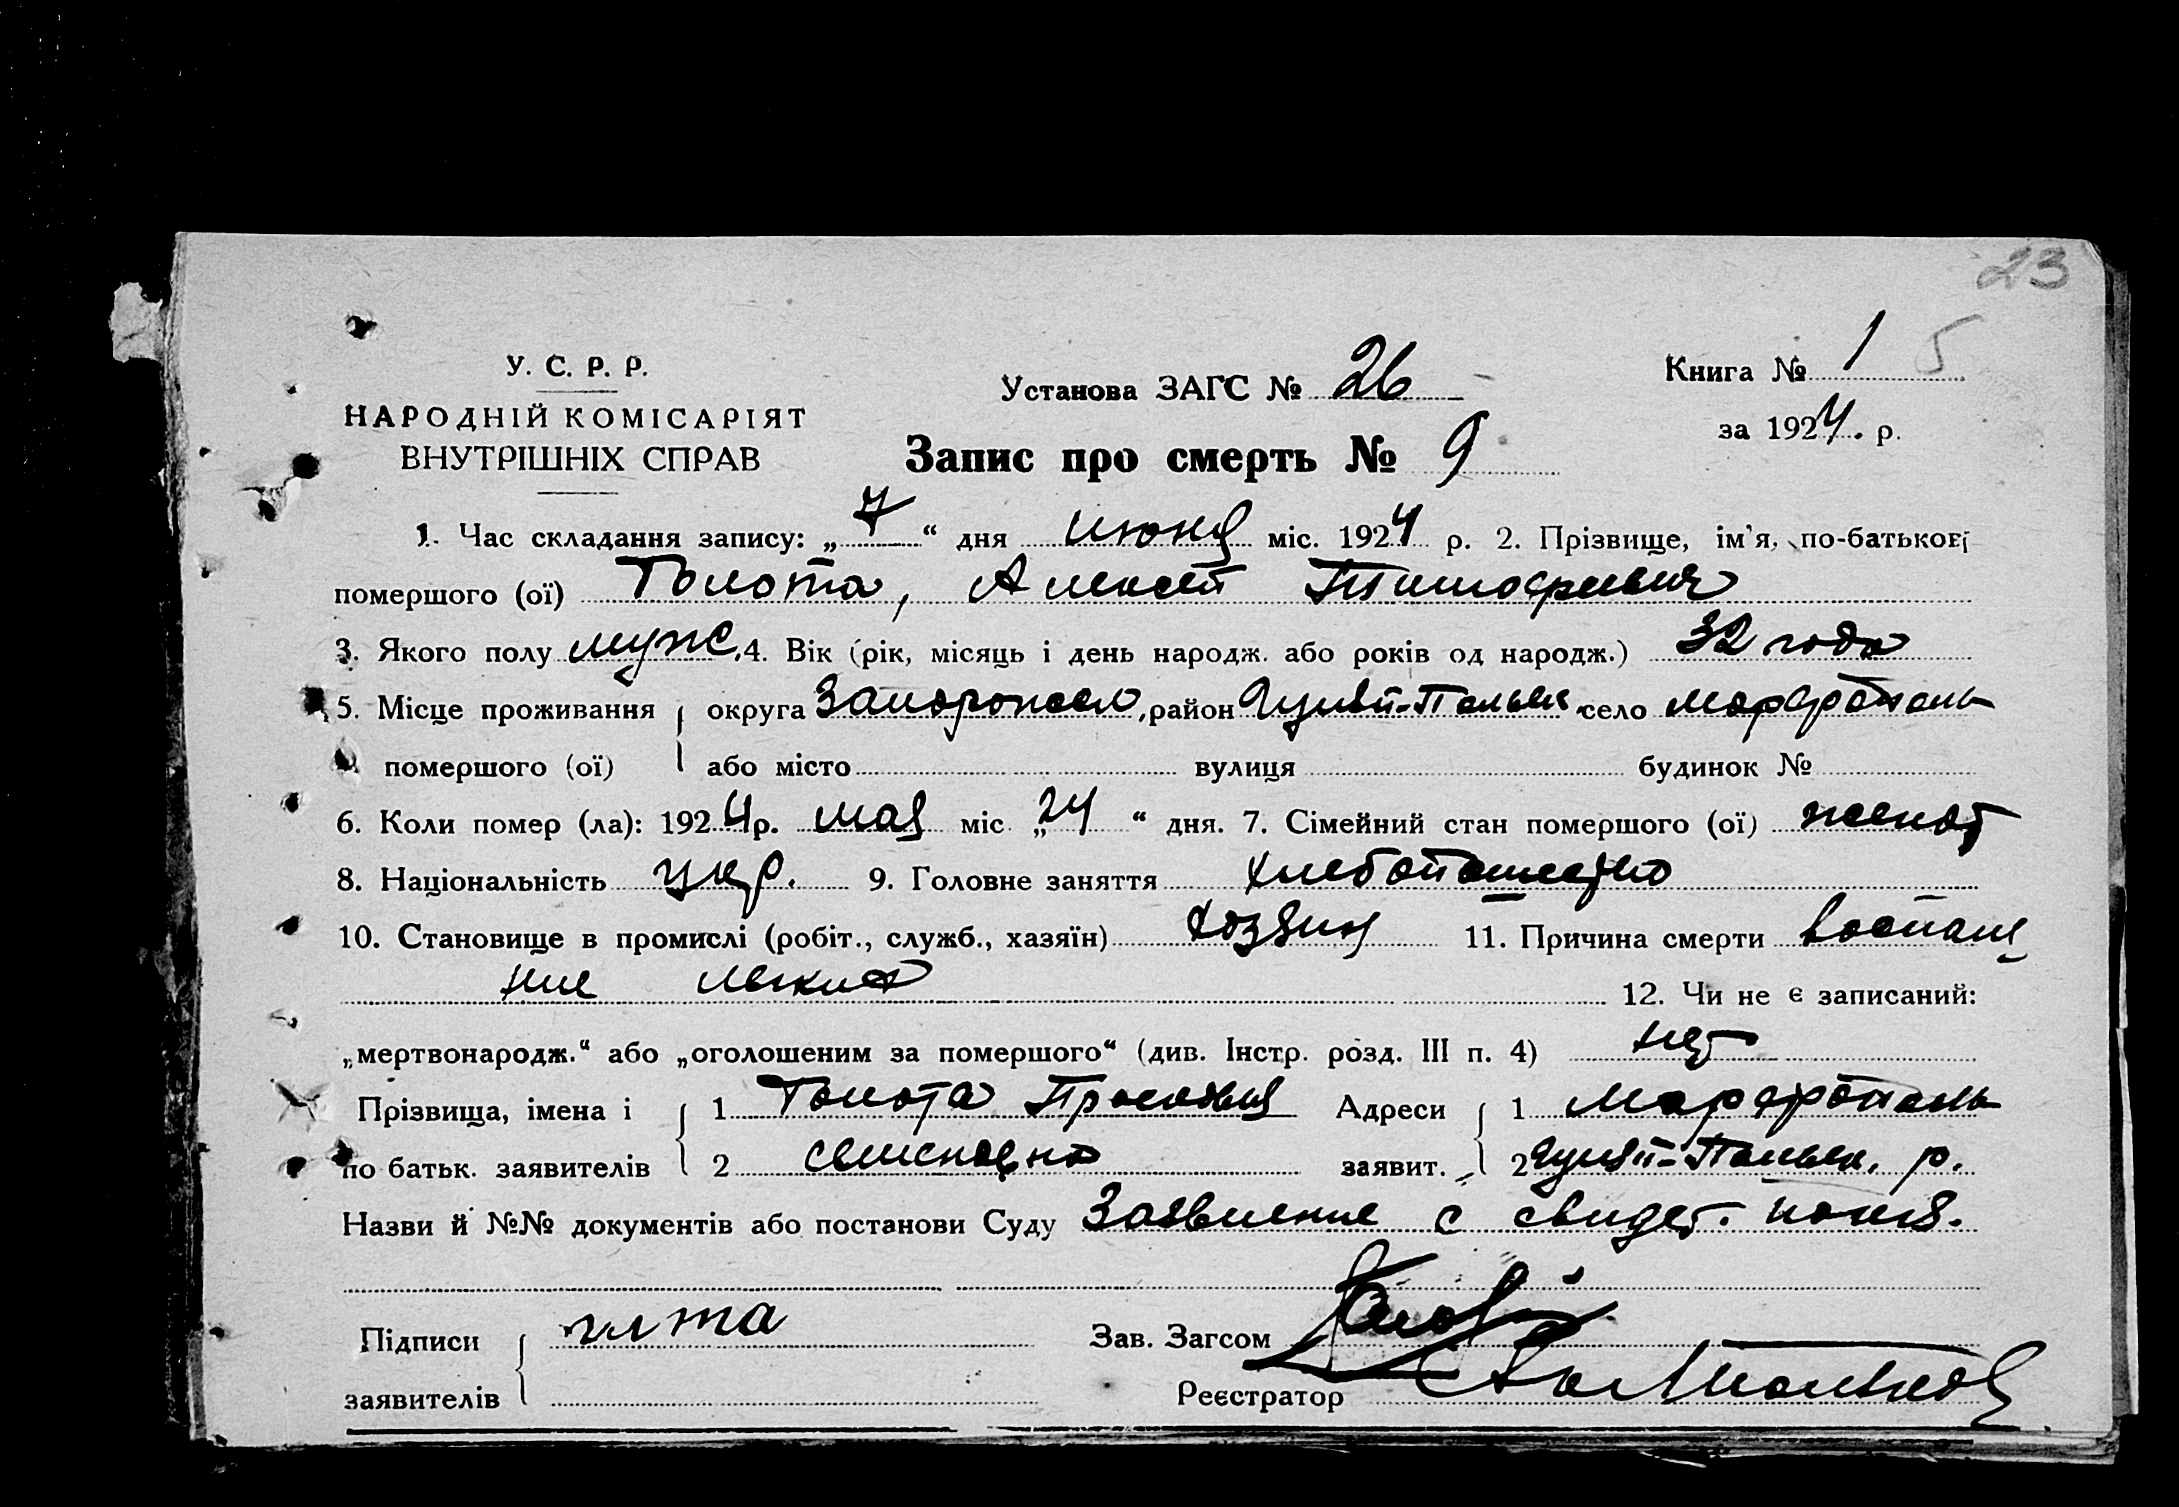 23
У. С. Р. Р.
НАРОДНІЙ КОМІСАРІЯТ
ВНУТРІШНІХ СПРАВ
Установа ЗАГС № 26
Книга № 1 5
за 1924 р.
Запис про смерть № 9
1. Час складання запису: „7“ дня июня міс. 1924 р. 2. Прізвище, ім'я, по-батькові
помершого (ої) Голота, Алексей Тимофеевич
3. Якого полу муж. 4. Вік (рік, місяць і день народж. або років од народж.) 32 года
5. Місце проживання округа Запорожск, район Гуляй-Польск село Марфополь
помершого (ої) або місто вулиця будинок №
6. Коли помер (ла): 1924 р. мая міс. „24“ дня. 7. Сімейний стан помершого (ої) женат
8. Національність укр. 9. Головне заняття хлебопашество
10. Становище в промислі (робіт., служб., хазяїн) хозяин 11. Причина смерти воспале
ние легких 12. Чи не є записаний:
„мертвонародж.“ або „оголошеним за помершого“ (див. Інстр. розд. III п. 4) нет
Прізвища, імена і 1 Голота Прасковья Адреси 1 Марфополь
по батьк. заявителів 2 заявит. 2 Гуляй-Польск. р.
Назви й №№ документів або постанови Суду Заявление с свидет. показ.
Підписи Зав. Загсом
заявителів Реєстратор